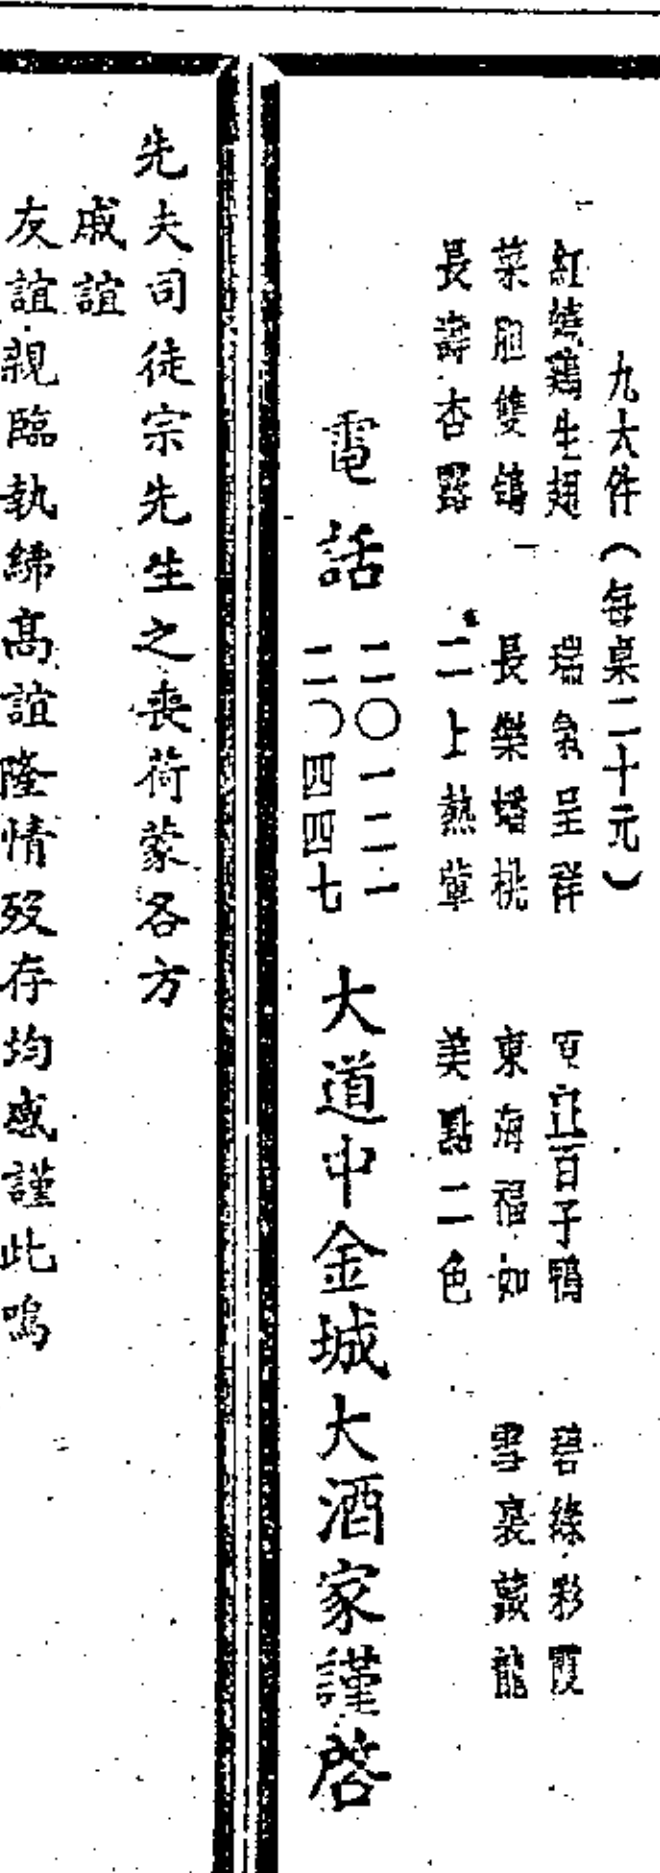 九大件（每桌二十元）
紅燒鷄生翅　瑞氣呈祥　宜百子鴨　碧綠彩霞
菜胆雙鴿　長樂蟠桃　東海福如　雪裏藏龍
長壽杏露　二上熱葷　美點二色
電話　二〇一二一　二〇四四七　大道中金城大酒家謹啓
先夫司徒宗先生之喪荷蒙各方
戚誼
友誼親臨執紼高誼隆情歿存均感謹此鳴